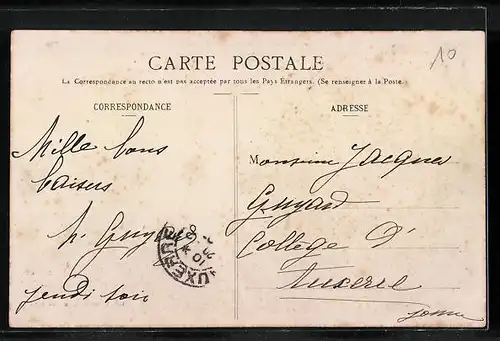 CARTE POSTALE
10
La Correspondance au recto n'est pas acceptée par tous les Pays Étrangers. (Se renseigner à la Poste.)
CORRESPONDANCE
Mille bons
baisers
jeudi soir
AUXERRE
ADRESSE
Monsieur Jacques
Guyard
Collège d'
Auxerre
Yonne